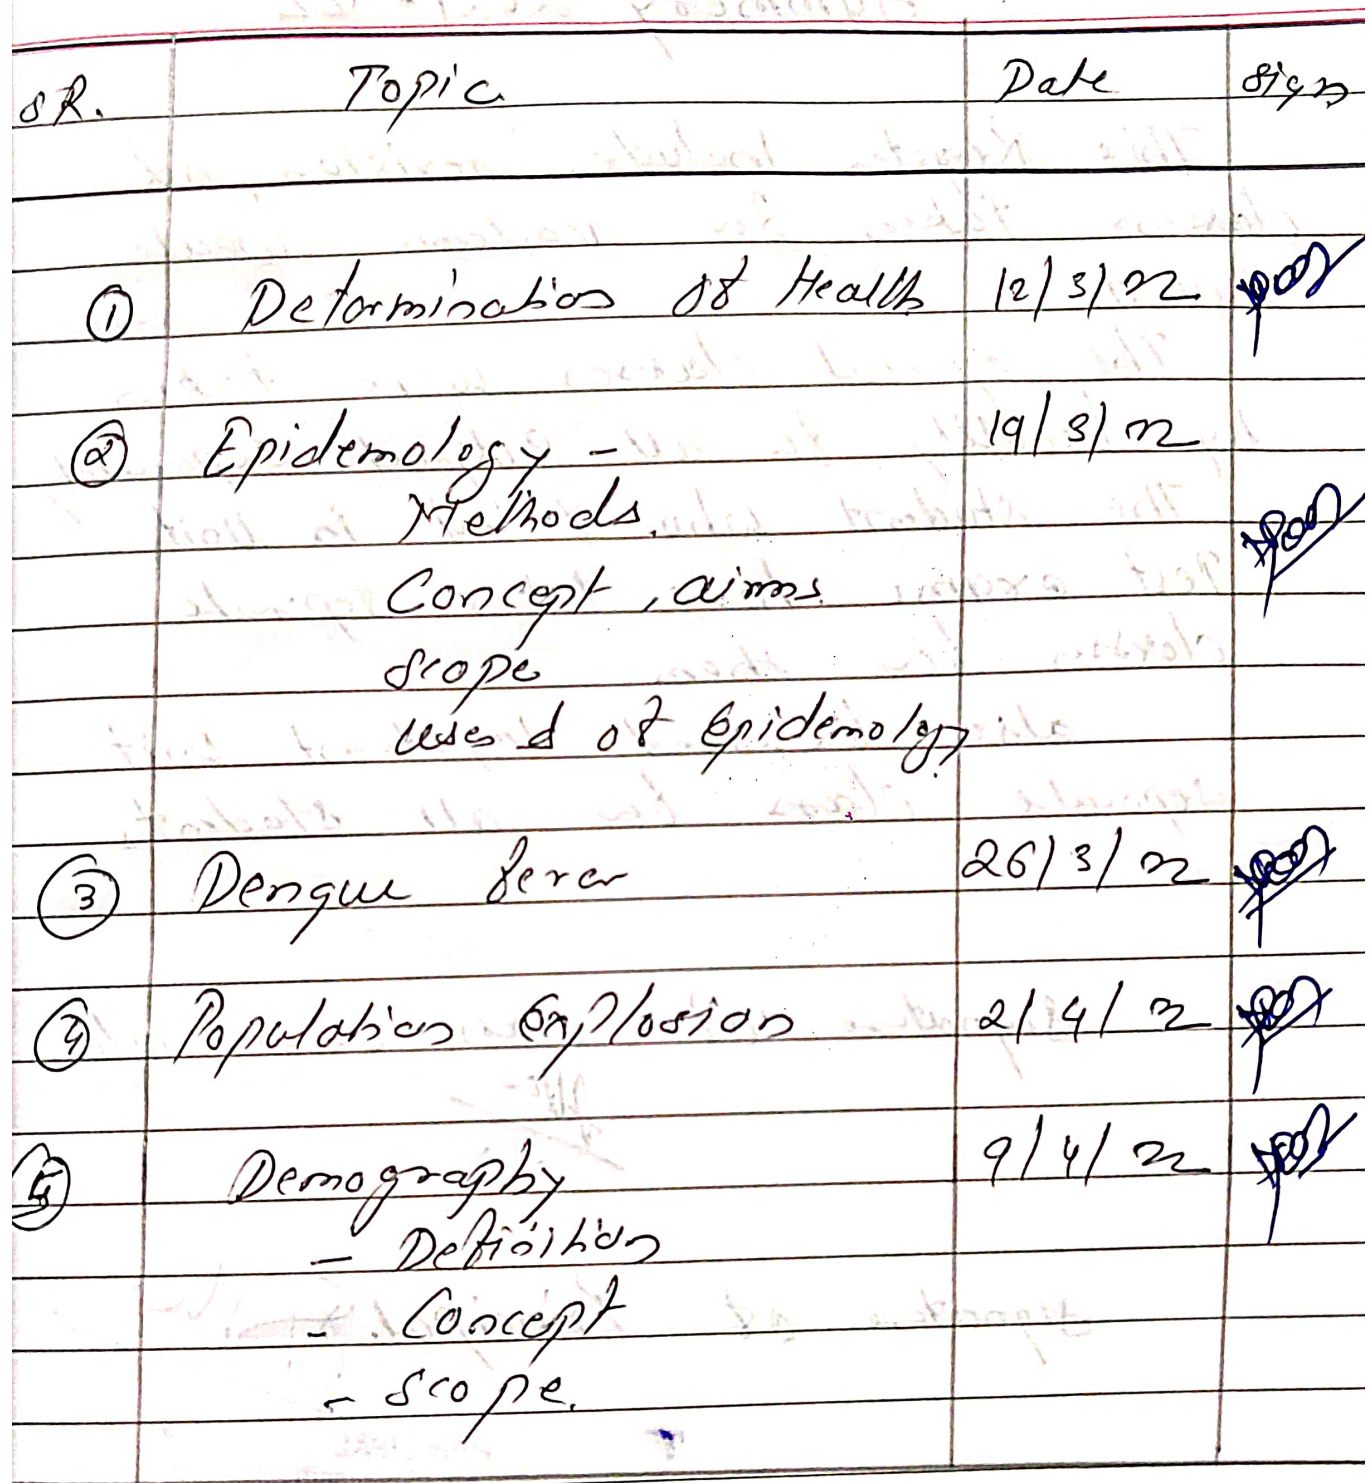 SR. Topic Date Sign
1 Determination of Health 12/3/22
2 Epidemology - 19/3/22
Methods.
Concept, aims
scope
uses & of Epidemology
3 Dengue fever 26/3/22
4 Population Explosion 2/4/22
5 Demography 9/4/22
- Definition
- Concept
- scope.